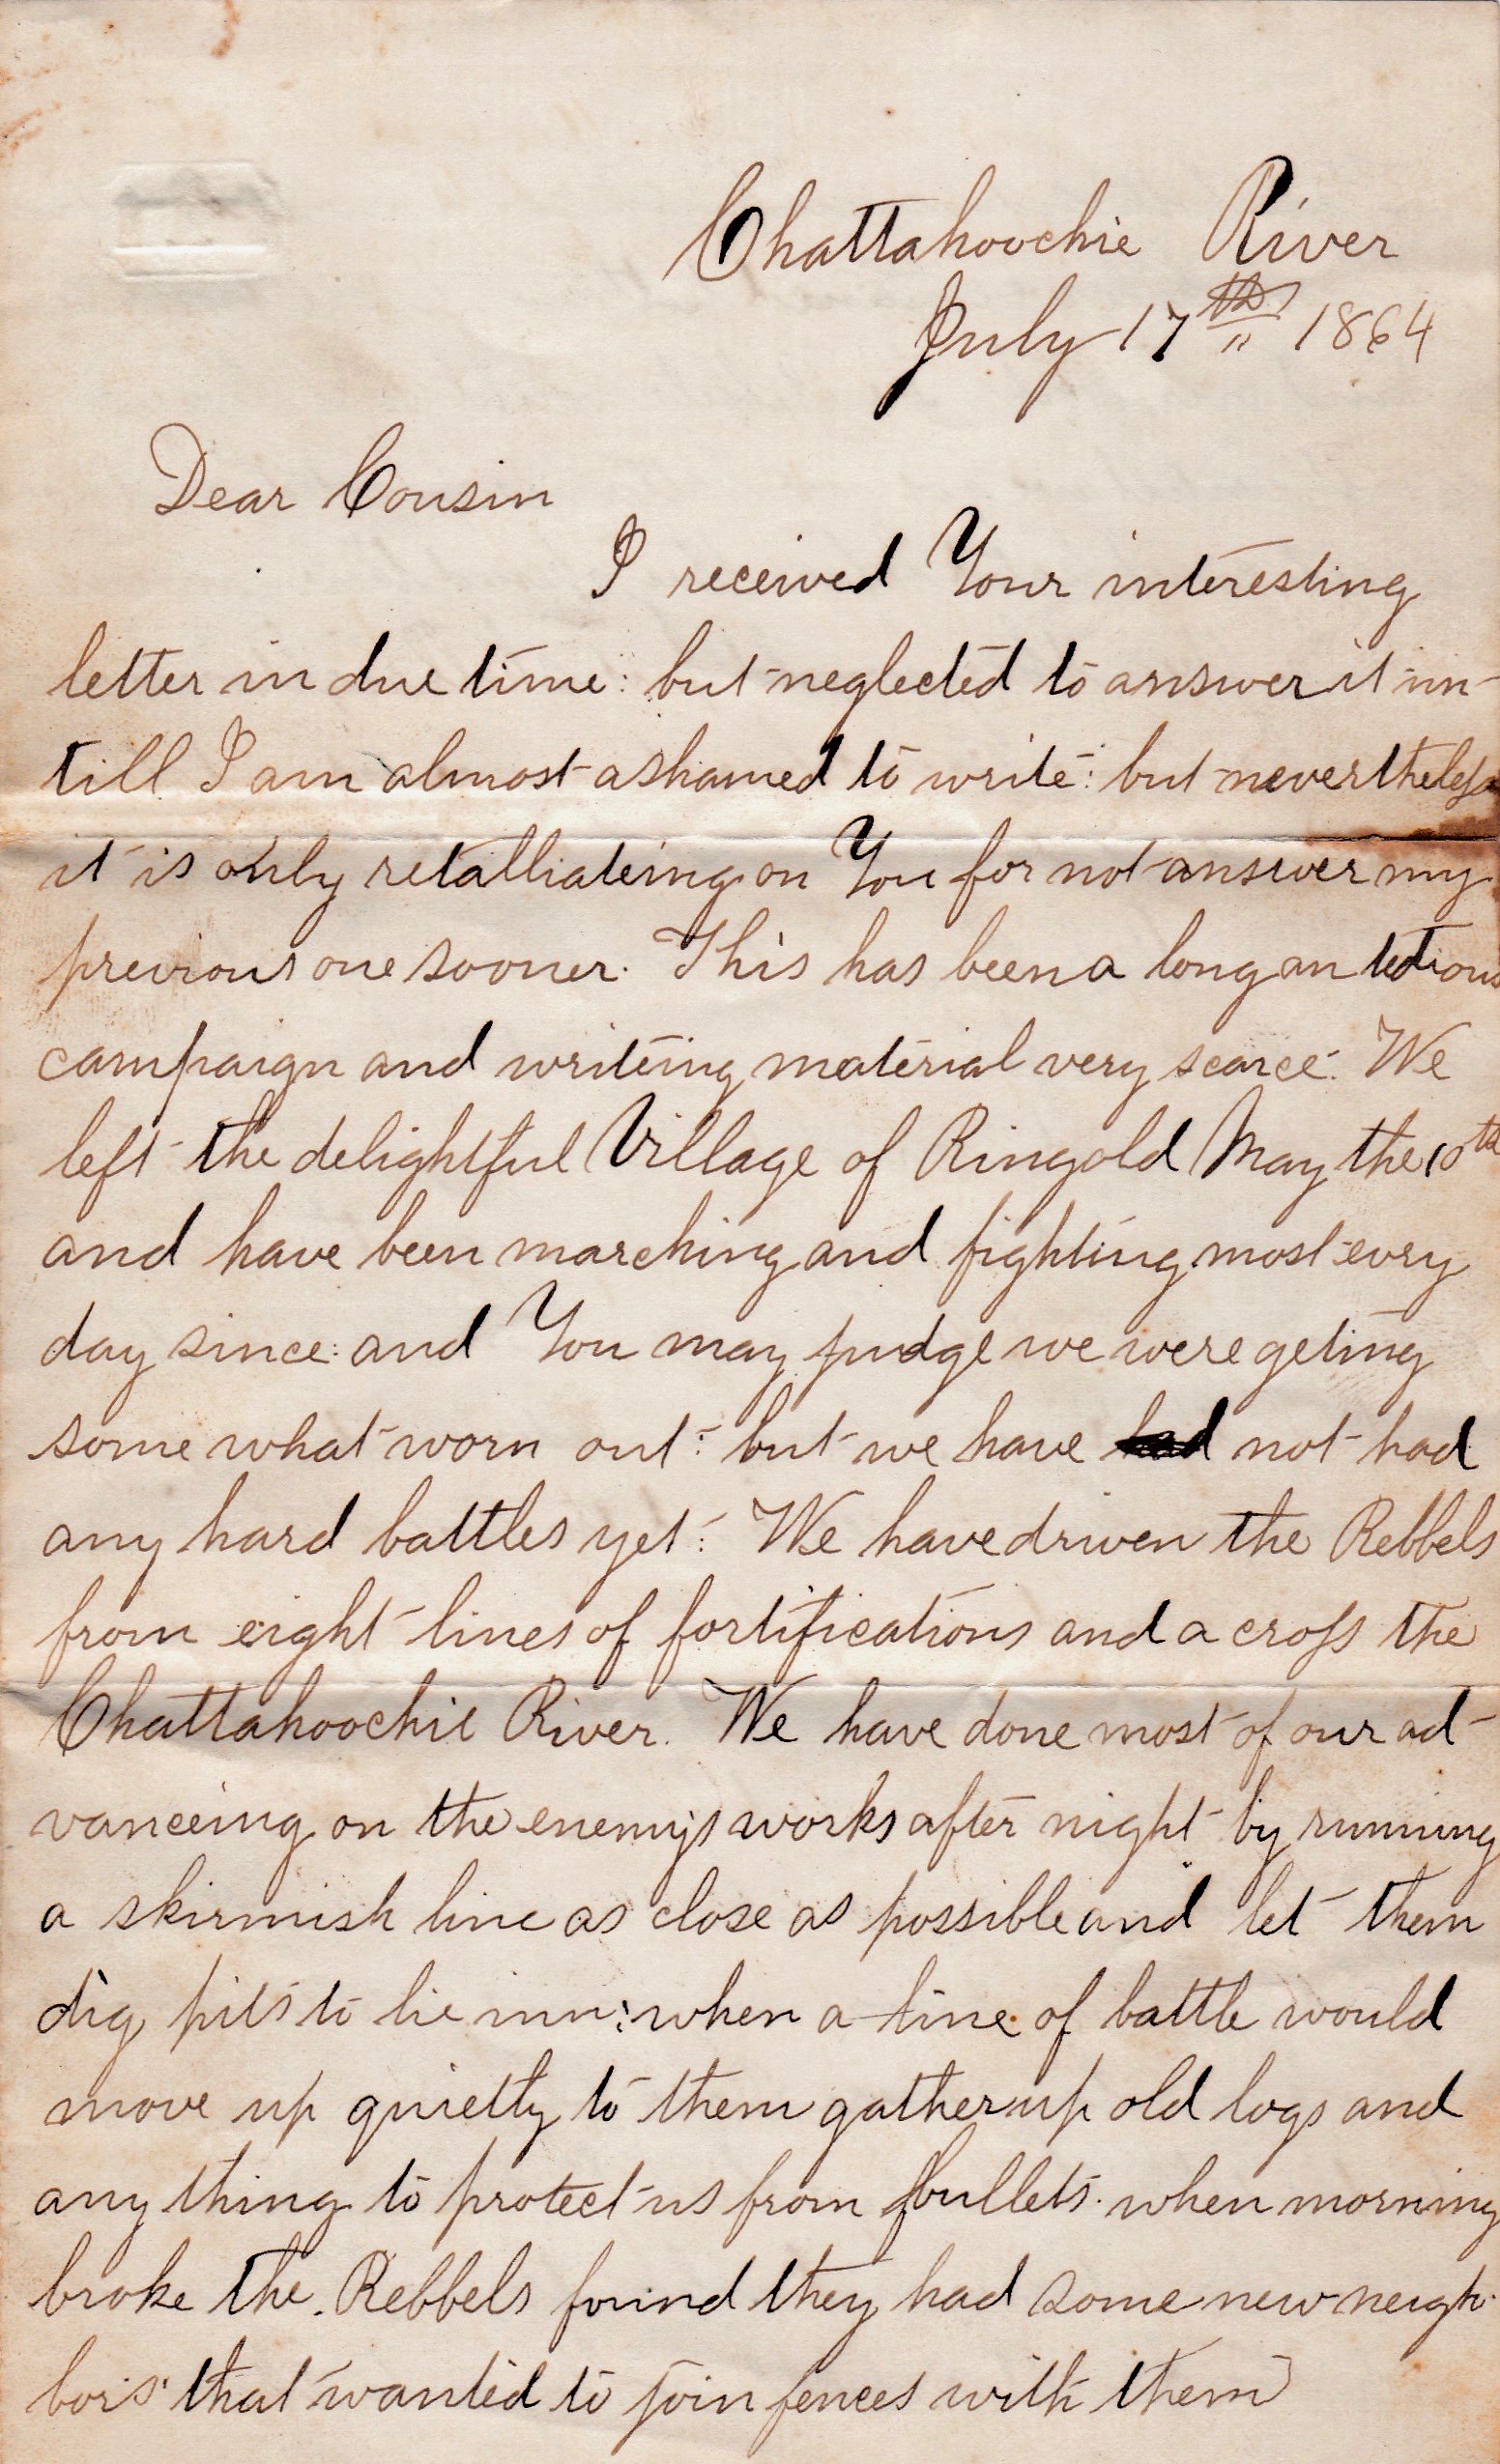 Chattahoochie River
July 17th 1864
Dear Cousin
I received Your interesting
letter in due time: but neglected to answer it un-
till I am almost ashamed to write: but nevertheless
it is only retalliateing on You for not answer my
previous one sooner. This has been a long an tedious
campaign and writeing material very scarce. We
left the delightful Village of Ringold May the 10th
and have been marching and fighting most evry
day since: and You may judge we were geting
some what worn out: but we have had not had
any hard battles yet: We have driven the Rebbels
from eight lines of fortifications and a cross the
Chattahoochie River. We have done most of our ad-
vanceing on the enemys works after night by running
a skirmish line as close as possible and let them
dig pits to lie inn: when a line of battle would
move up quietly to them gather up old logs and
any thing to protect us from bullets. when morning
broke the Rebbels found they had some new neigh-
bors that wanted to join fences with them